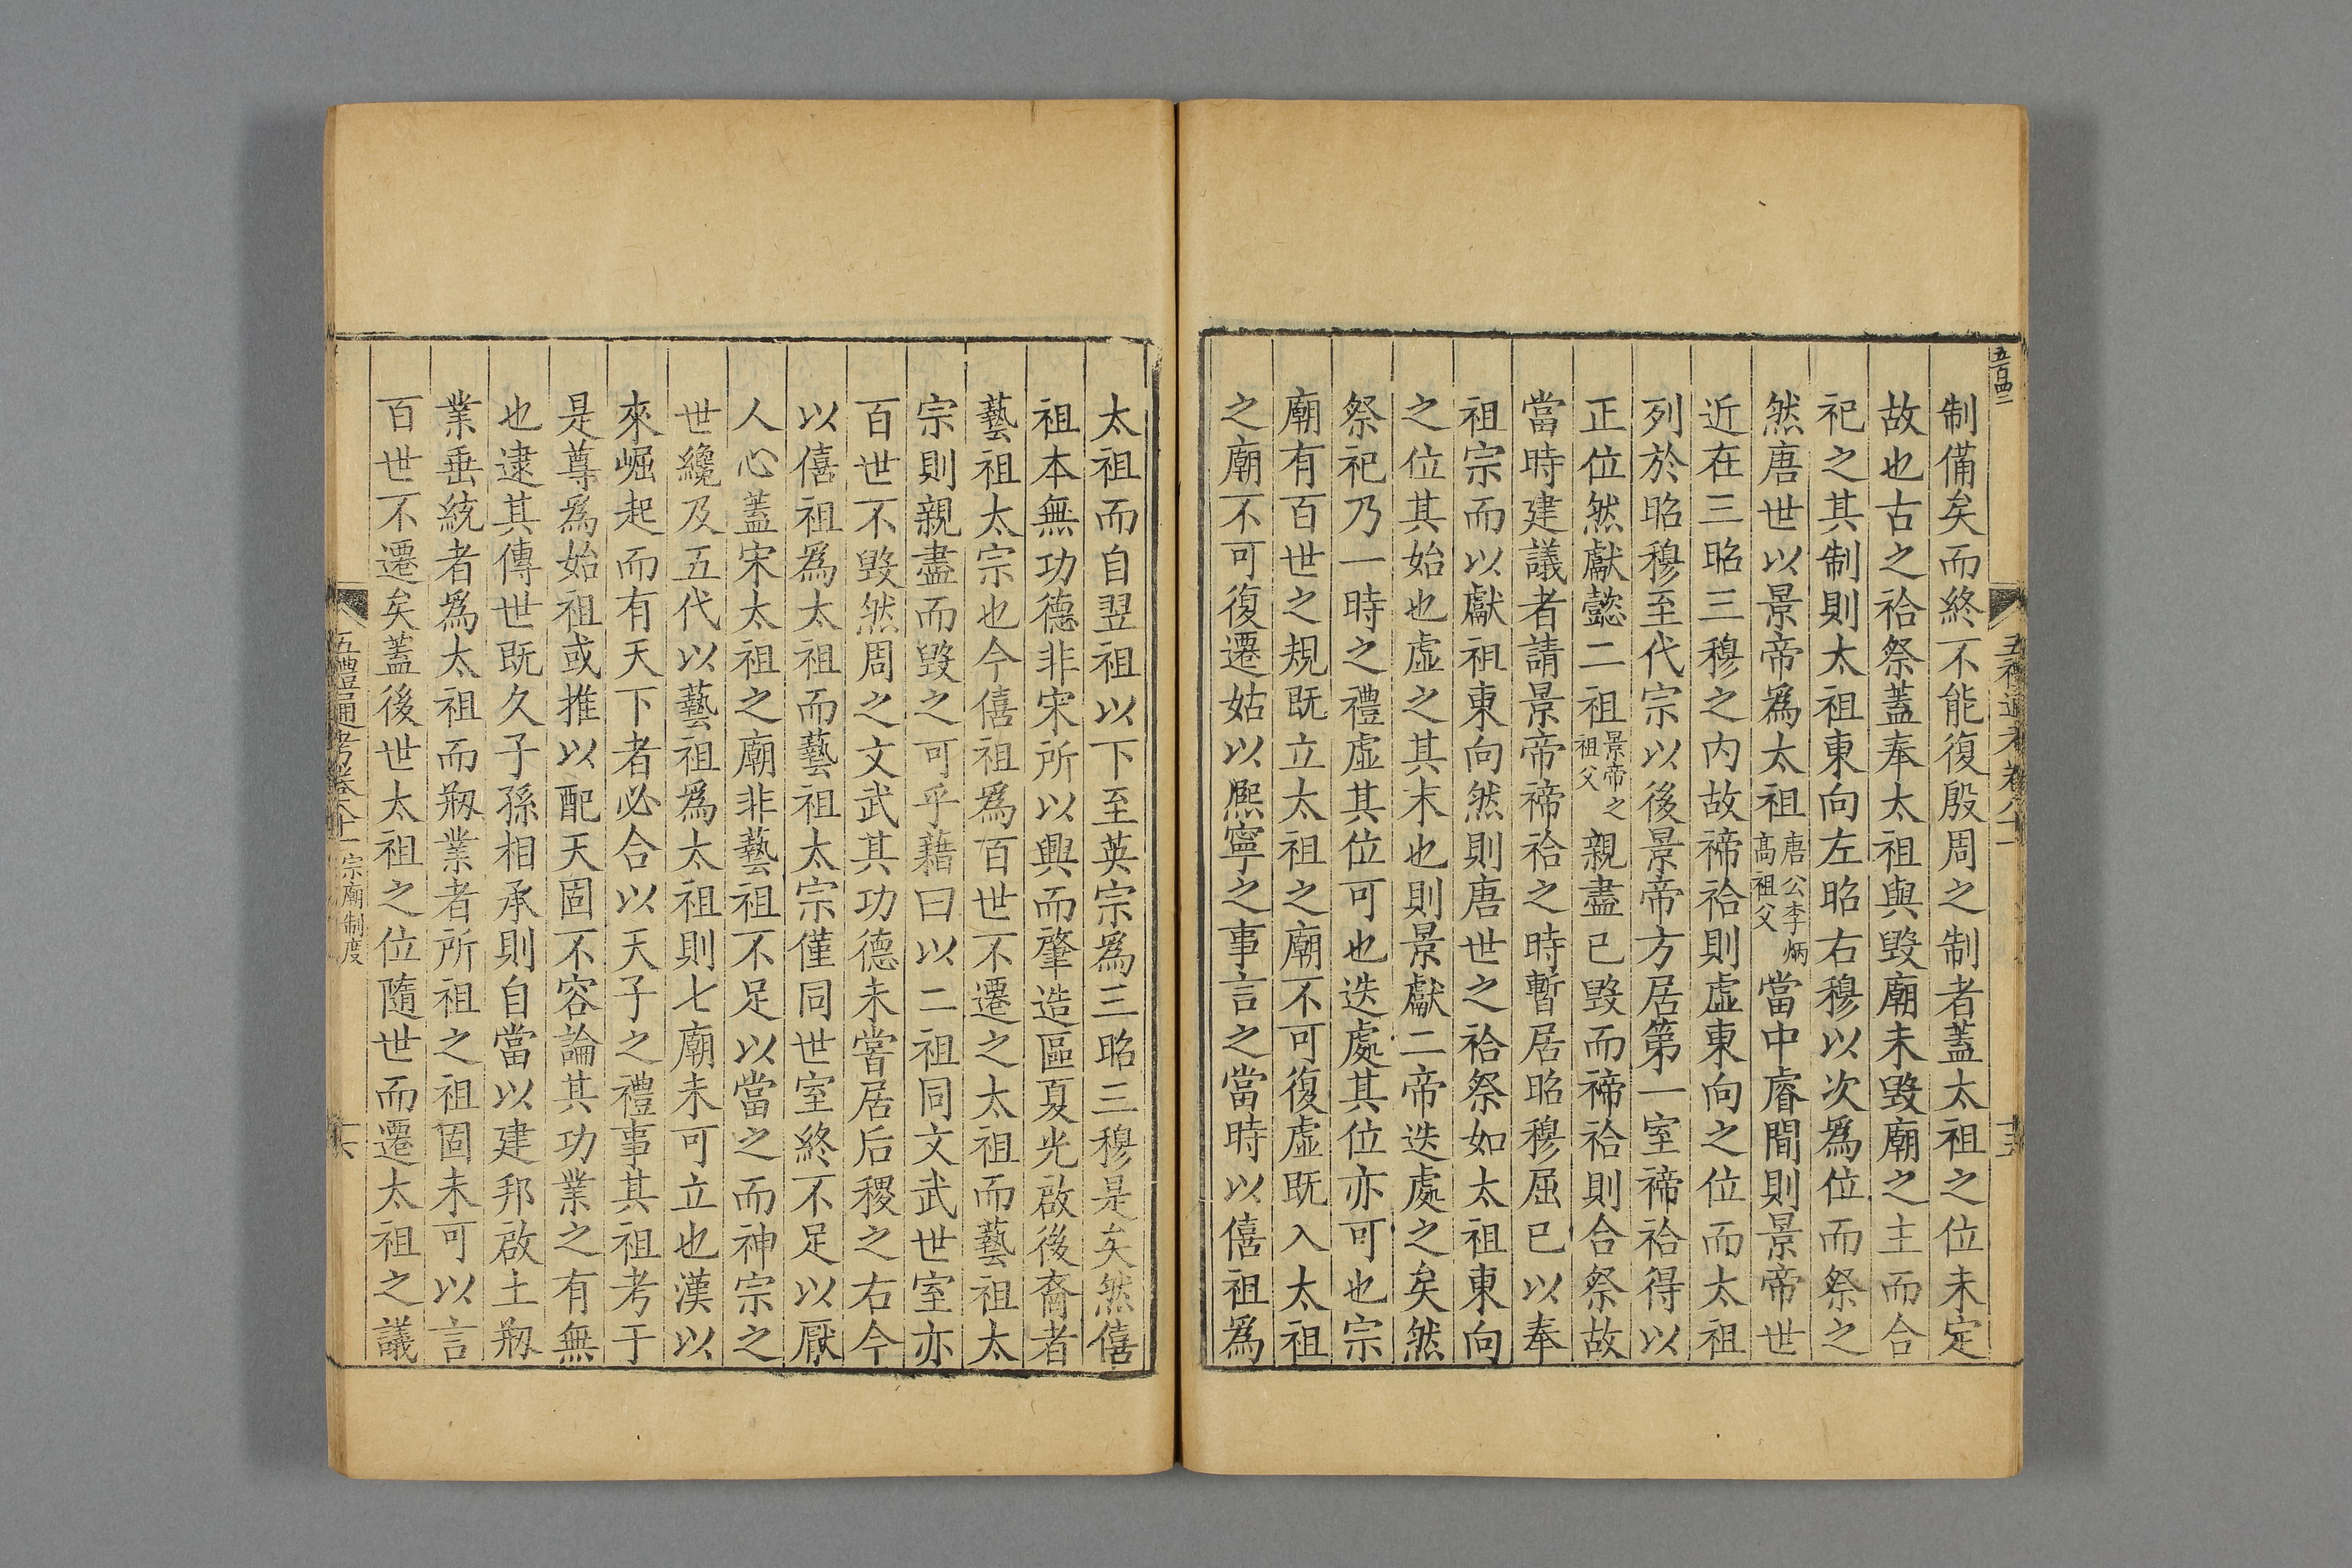 制備矣而終不能復殷周之制者蓋太祖之位未定
故也古之祫祭蓋奉太祖與毀廟未毀廟之主而合
祀之其制則太祖東向左昭右穆以次爲位而祭之
然唐世以景帝爲太祖唐公李炳高祖父當中睿間則景帝世
近在三昭三穆之内故禘祫則虛東向之位而太祖
列於昭穆至代宗以後景帝方居第一室禘祫得以
正位然獻懿二祖景帝之祖父親盡已毀而禘祫則合祭故
當時建議者請景帝禘祫之時暫居昭穆屈已以奉
祖宗而以獻祖東向然則唐世之祫祭如太祖東向
之位其始也虛之其末也則景獻二帝迭處之矣然
祭祀乃一時之禮虛其位可也迭處其位亦可也宗
廟有百世之規既立太祖之廟不可復虛既入太祖
之廟不可復遷姑以熙寧之事言之當時以僖祖爲
太祖而自翌祖以下至英宗爲三昭三穆是矣然僖
祖本無功德非宋所以興而肇造區夏光啟後裔者
藝祖太宗也今僖祖爲百世不遷之太祖而藝祖太
宗則親盡而毀之可乎藉曰以二祖同文武世室亦
百世不毀然周之文武其功德未嘗居后稷之右今
以僖祖爲太祖而藝祖太宗僅同世室終不足以厭
人心蓋宋太祖之廟非藝祖不足以當之而神宗之
世纔及五代以藝祖爲太祖則七廟未可立也漢以
來崛起而有天下者必合以天子之禮事其祖考于
是尊爲始祖或推以配天固不容論其功業之有無
也逮其傳世既久子孫相承則自當以建邦啟土剏
業垂統者爲太祖而剏業者所祖之祖固未可以言
百世不遷矣蓋後世太祖之位隨世而遷太祖之議
五禮通考卷八十一 宗廟制度